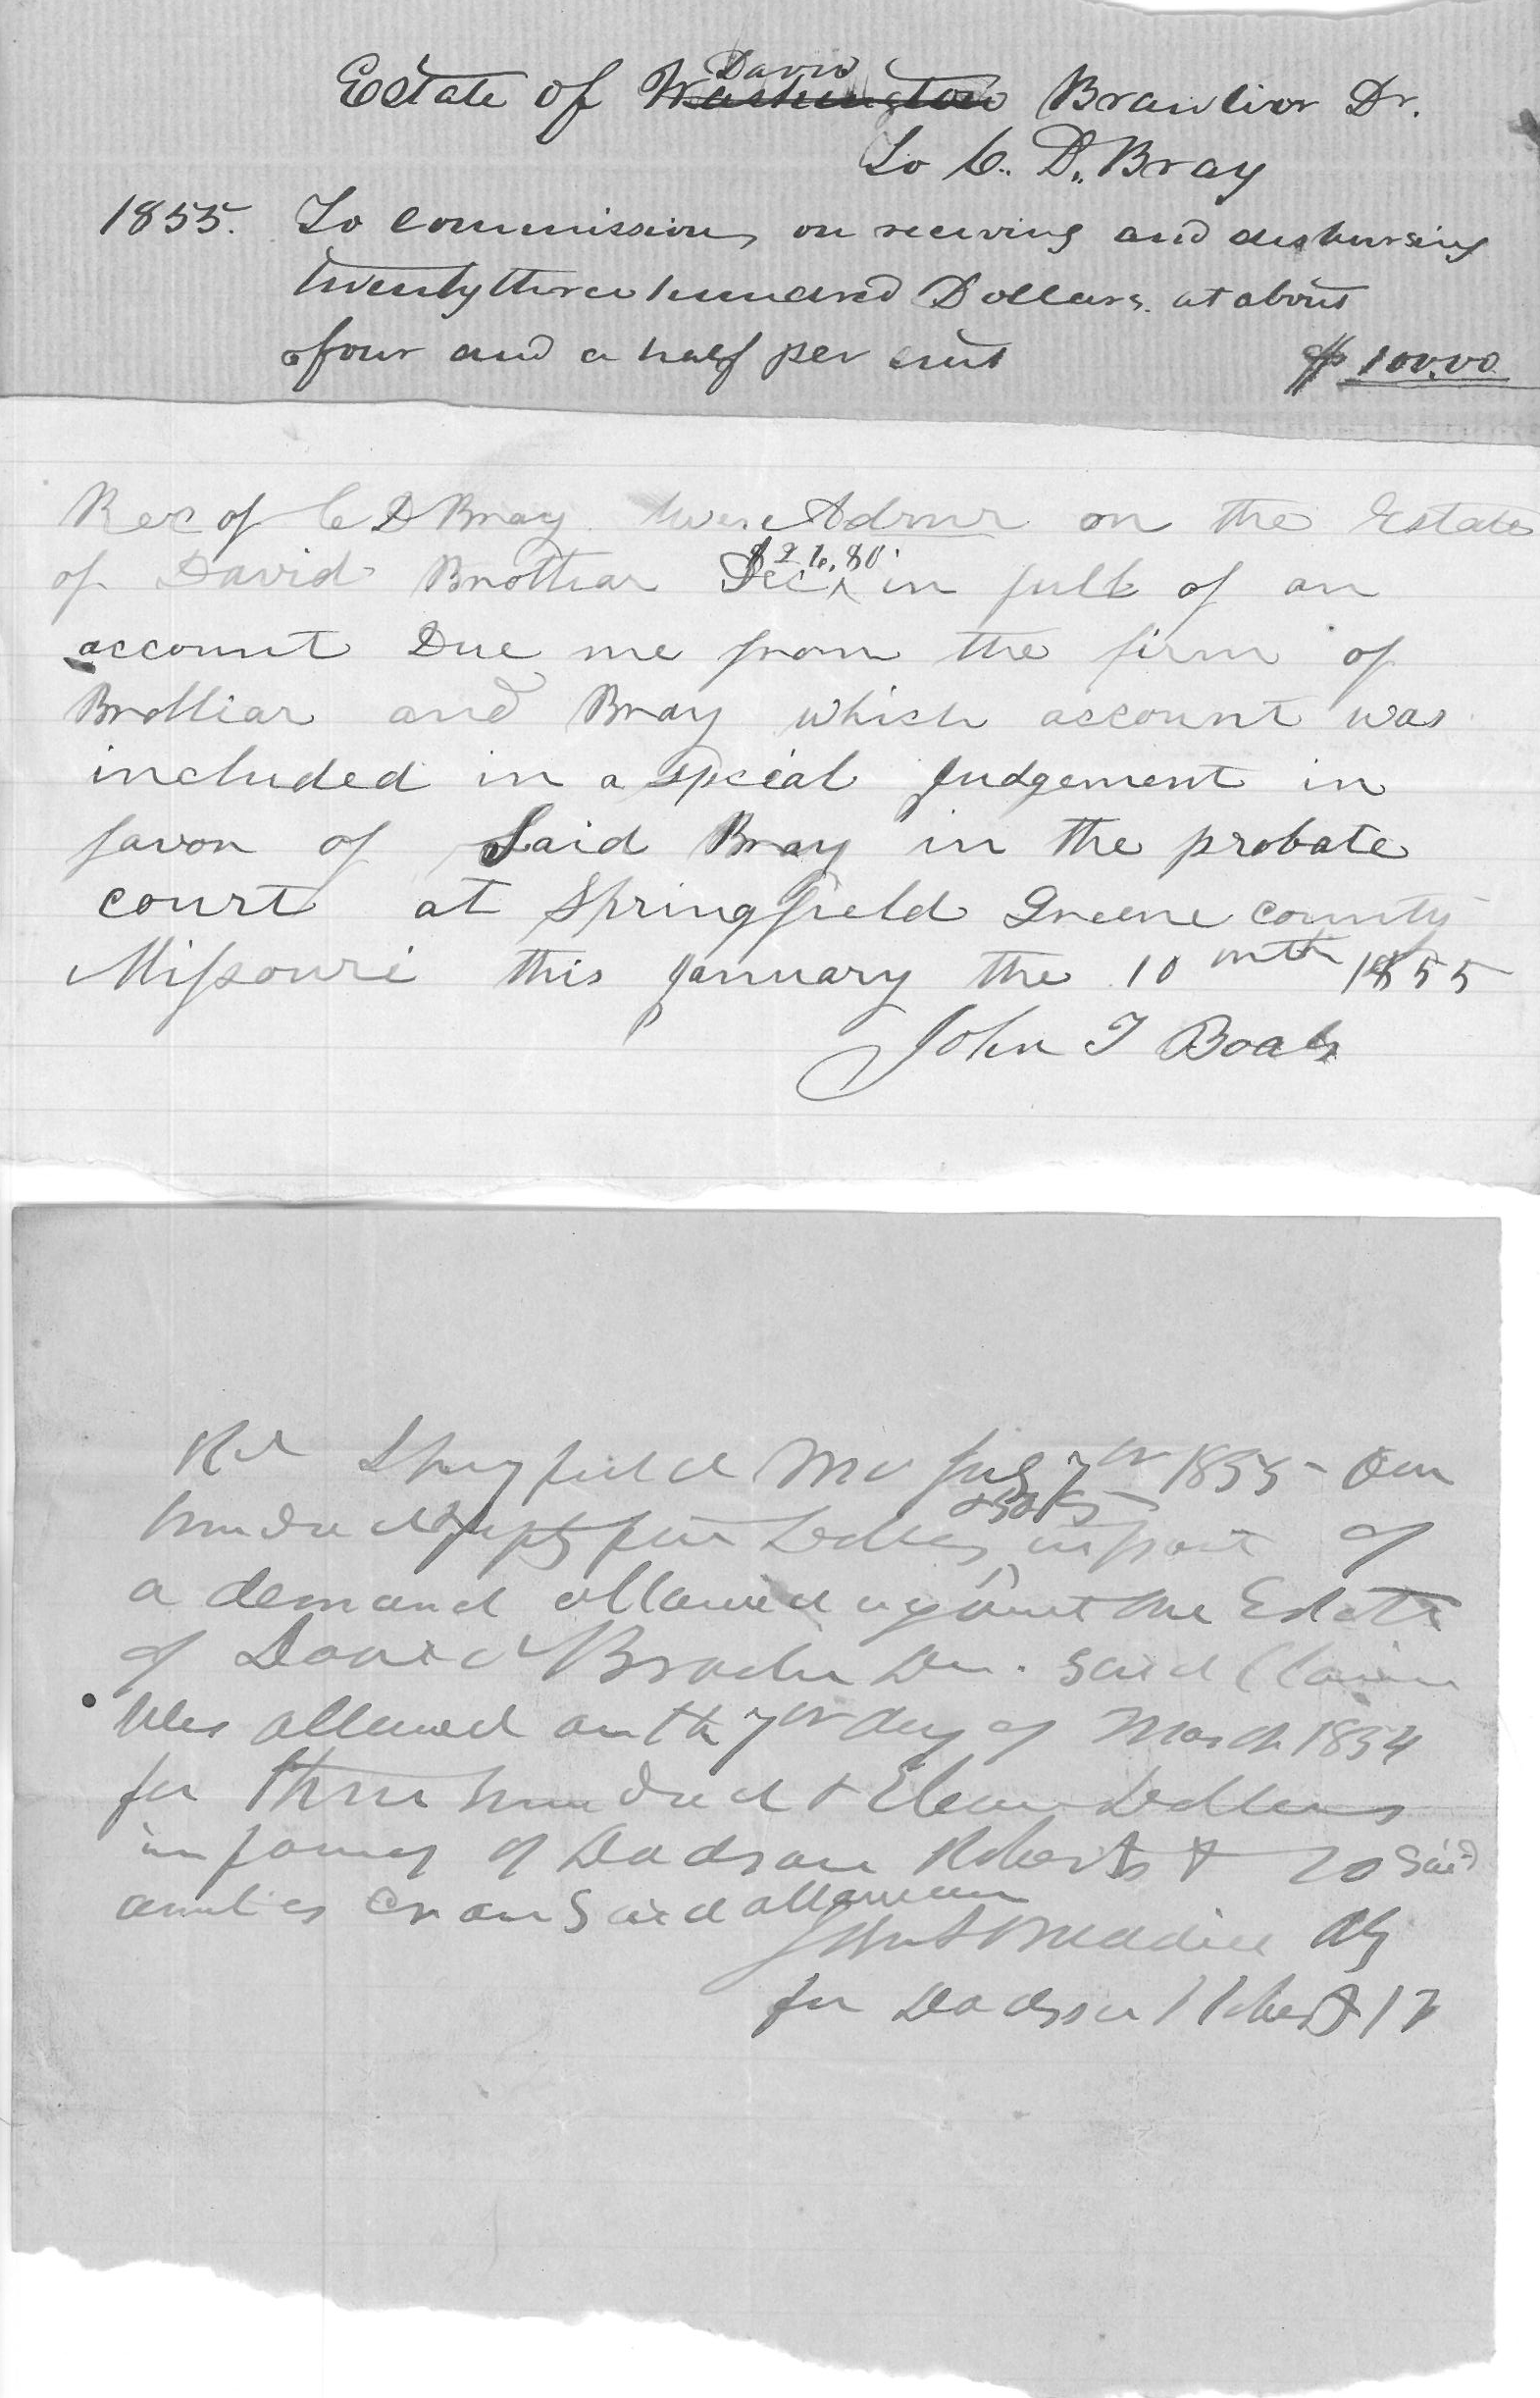 David
Estate of Washington Brawlior Dr.
To C. D. Bray
1855. To commissions on receiving and disbursing
twenty three hundred Dollars at about
four and a half per cent $ 100.00
Rec of C D Bray Admr on the Estate
$26.80
of David Brolliar Dec in full of an
account Due me from the firm of
Brolliar and Bray which account was
included in a special Judgement in
favor of Said Bray in the probate
court at Springfield Greene county
Missouri this January the 10 1855
John T Boals
Springfield Mo 7th 1855 - One
hundred & fifty five Dollars in part of
a demand allowed against the Estate
of David said Claim
Was allowed on the 7th day of March 1854
for three hundred & Eleven Dollars
in favor of Dodson Roberts & Co said
on said allowance
for Dodson Roberts